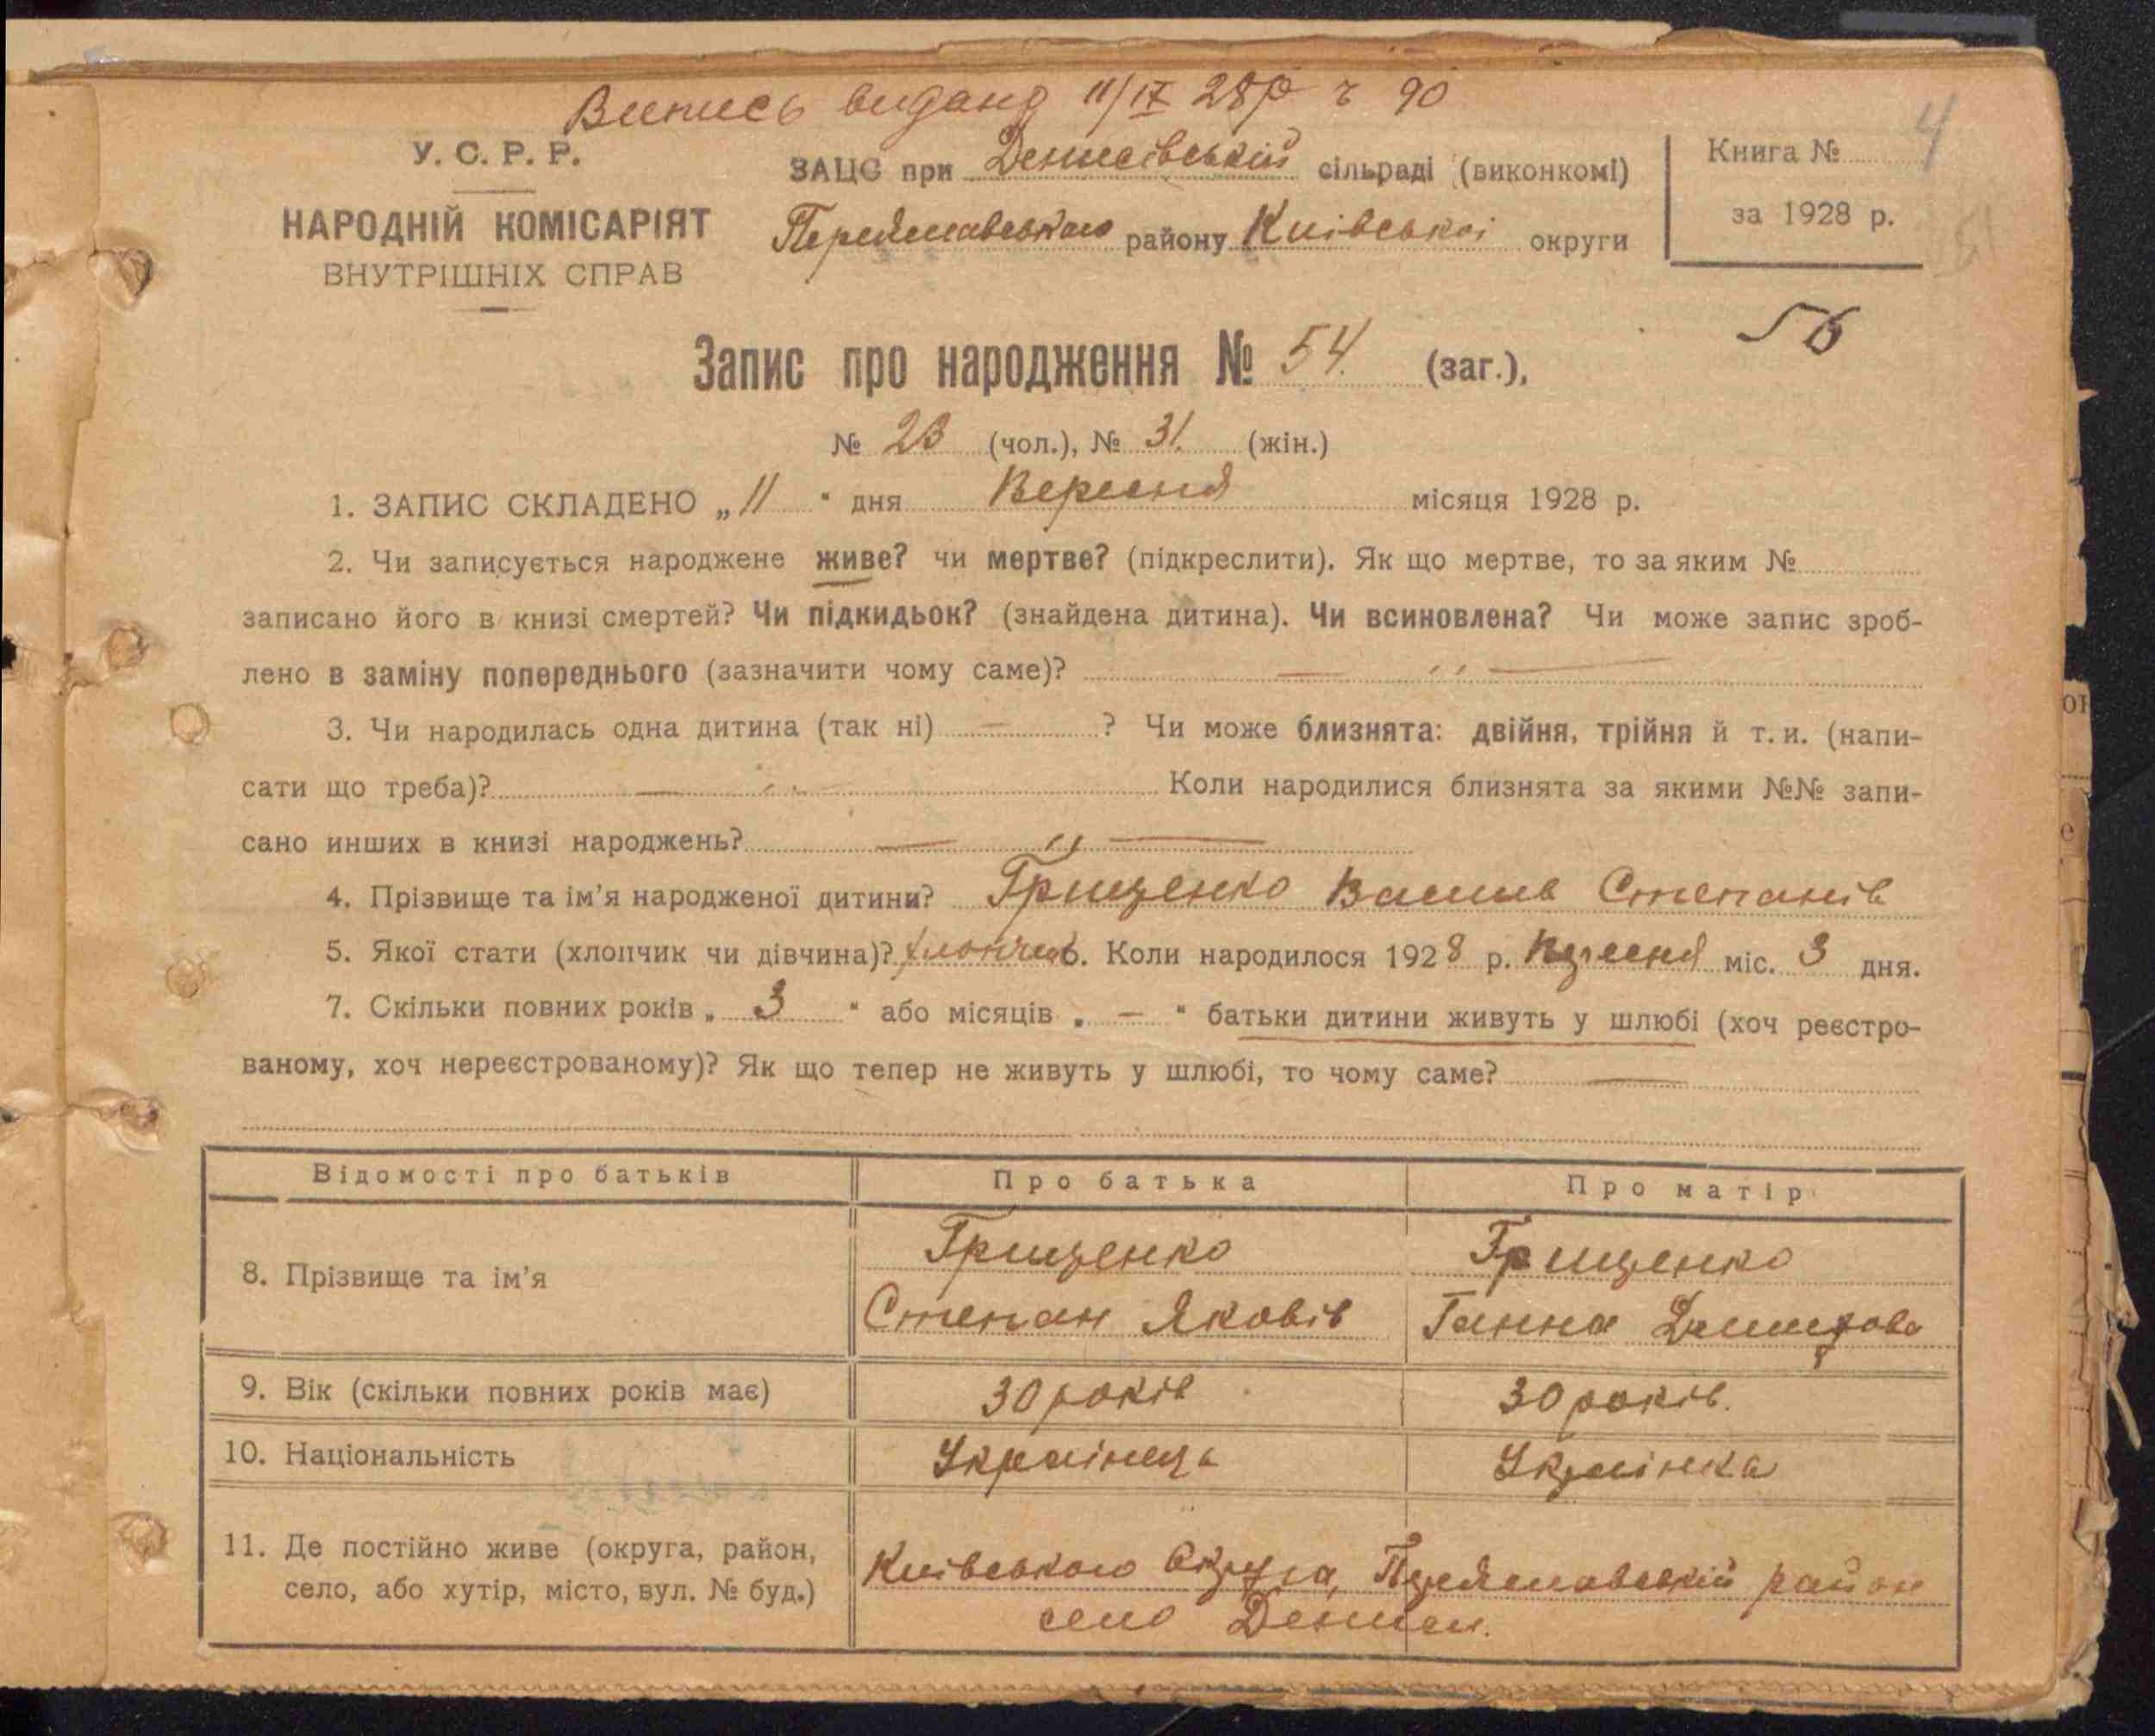 Випись видано 11/IX 28р ч 90
У. С. Р. Р.
НАРОДНІЙ КОМІСАРІЯТ
ВНУТРІШНІХ СПРАВ
ЗАЦС при Денисівській сільраді (виконкомі)
Переяславського району Київської округи
Книга № 4
за 1928 р.
Запис про народження № 54. (заг.),
56
№ 23 (чол.), № 31. (жін.)
1. ЗАПИС СКЛАДЕНО „11 " дня Вересня місяця 1928 р.
2. Чи записується народжене живе? чи мертве? (підкреслити). Як що мертве, то за яким №
записано його в книзі смертей? Чи підкидьок? (знайдена дитина). Чи всиновлена? Чи може запис зроб-
лено в заміну попереднього (зазначити чому саме)? — ,, —
3. Чи народилась одна дитина (так ні) — ? Чи може близнята: двійня, трійня й т. и. (напи-
сати що треба)? — ,, — Коли народилися близнята за якими №№ запи-
сано инших в книзі народжень? — ,, —
4. Прізвище та ім'я народженої дитини? Грищенко Василь Степанів
5. Якої стати (хлопчик чи дівчина)? хлопчик 6. Коли народилося 1928 р. Вересня міс. 3 дня.
7. Скільки повних років „ 3 " або місяців „ — " батьки дитини живуть у шлюбі (хоч реєстро-
ваному, хоч нереєстрованому)? Як що тепер не живуть у шлюбі, то чому саме? —
Відомості про батьків
Про батька
Про матір
8. Прізвище та ім'я
Грищенко
Степан Яковів
Грищенко
Ганна Демидова
9. Вік (скільки повних років має)
30 років
30 років.
10. Національність
Українець
Українка
11. Де постійно живе (округа, район,
село, або хутір, місто, вул. № буд.)
Київського Округа, Переяславській район
село Дениси.